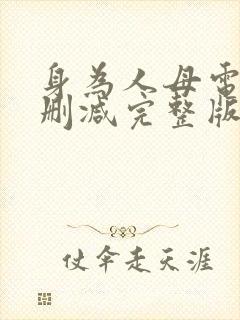 身為人母電
刪減完整版
仗傘走天涯